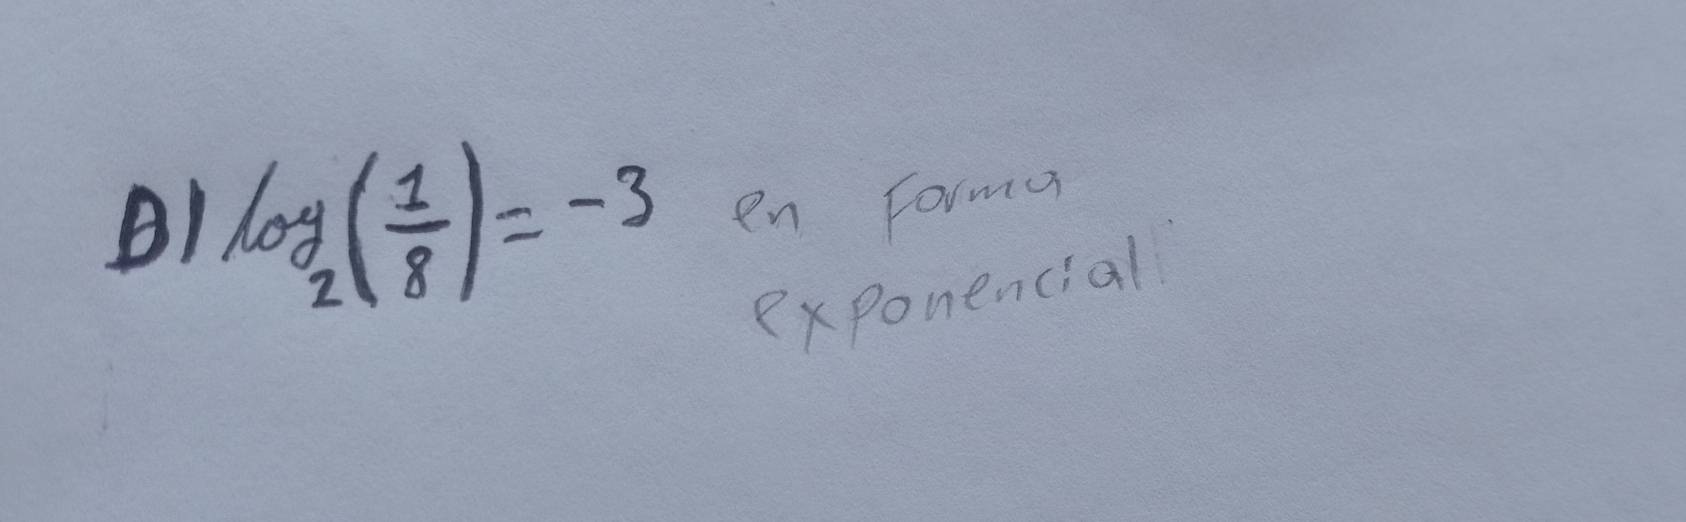 B) log₂(1/8) = -3 en Forma
exponencial